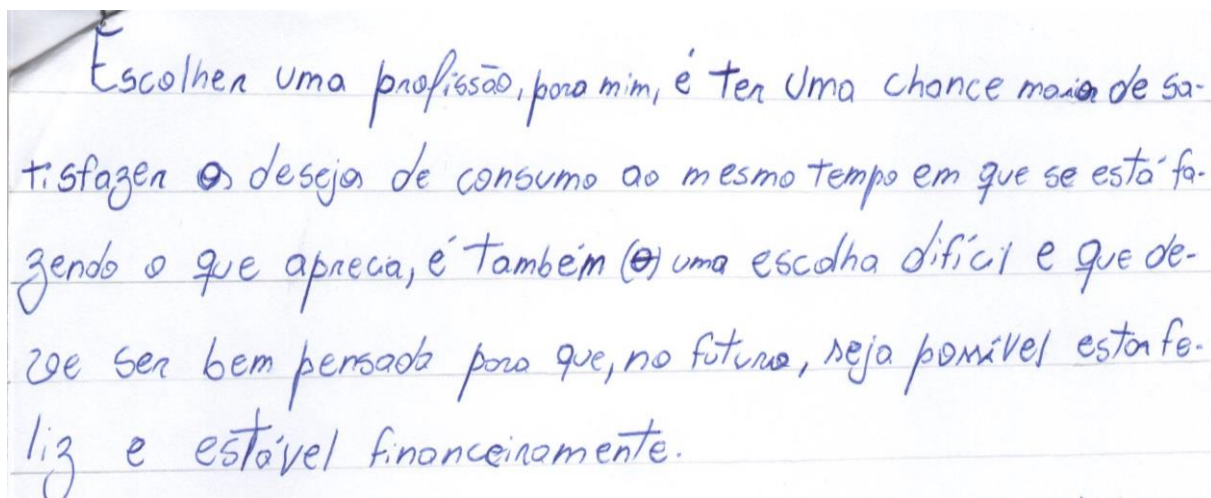 Escolher uma profissão, para mim, é ter uma chance maior de sa-
tisfazer os desejos de consumo ao mesmo tempo em que se está fa-
zendo o que aprecia, é também (o) uma escolha difícil e que de-
ve ser bem pensada para que, no futuro, seja possível estar fe-
liz e estável financeiramente.